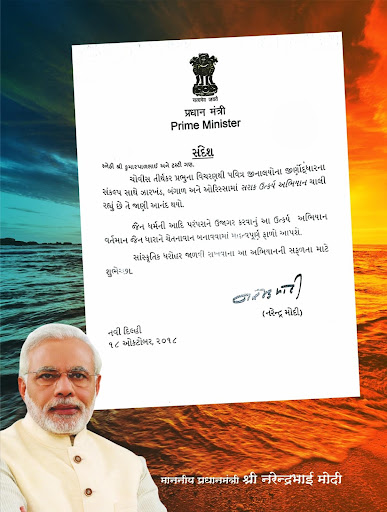 सत्यमेव जयते
प्रधान मंत्री
Prime Minister
સંદેશ
સ્નેહી શ્રી કુમારપાળભાઈ અને ટ્રસ્ટી ગણ,
ચોવીસ તીર્થંકર પ્રભુના વિચરણથી પવિત્ર જીનાલયોના જીર્ણોદ્ધારના
સંકલ્પ સાથે ઝારખંડ, બંગાળ અને ઓરિસ્સામાં સરાક ઉત્કર્ષ અભિયાન ચાલી
રહ્યું છે તે જાણી આનંદ થયો.
જૈન ધર્મની આદિ પરંપરાને ઉજાગર કરવાનું આ ઉત્કર્ષ અભિયાન
વર્તમાન જૈન ધારાને ચેતનાવાન બનાવવામાં મહત્વપૂર્ણ ફાળો આપશે.
સાંસ્કૃતિક ધરોહર જાળવી રાખવાના આ અભિયાનની સફળતા માટે
શુભેચ્છા.
(નરેન્દ્ર મોદી)
નવી દિલ્હી
૧૮ ઓક્ટોબર, ૨૦૧૮
માનનીય પ્રધાનમંત્રી શ્રી નરેન્દ્રભાઈ મોદી